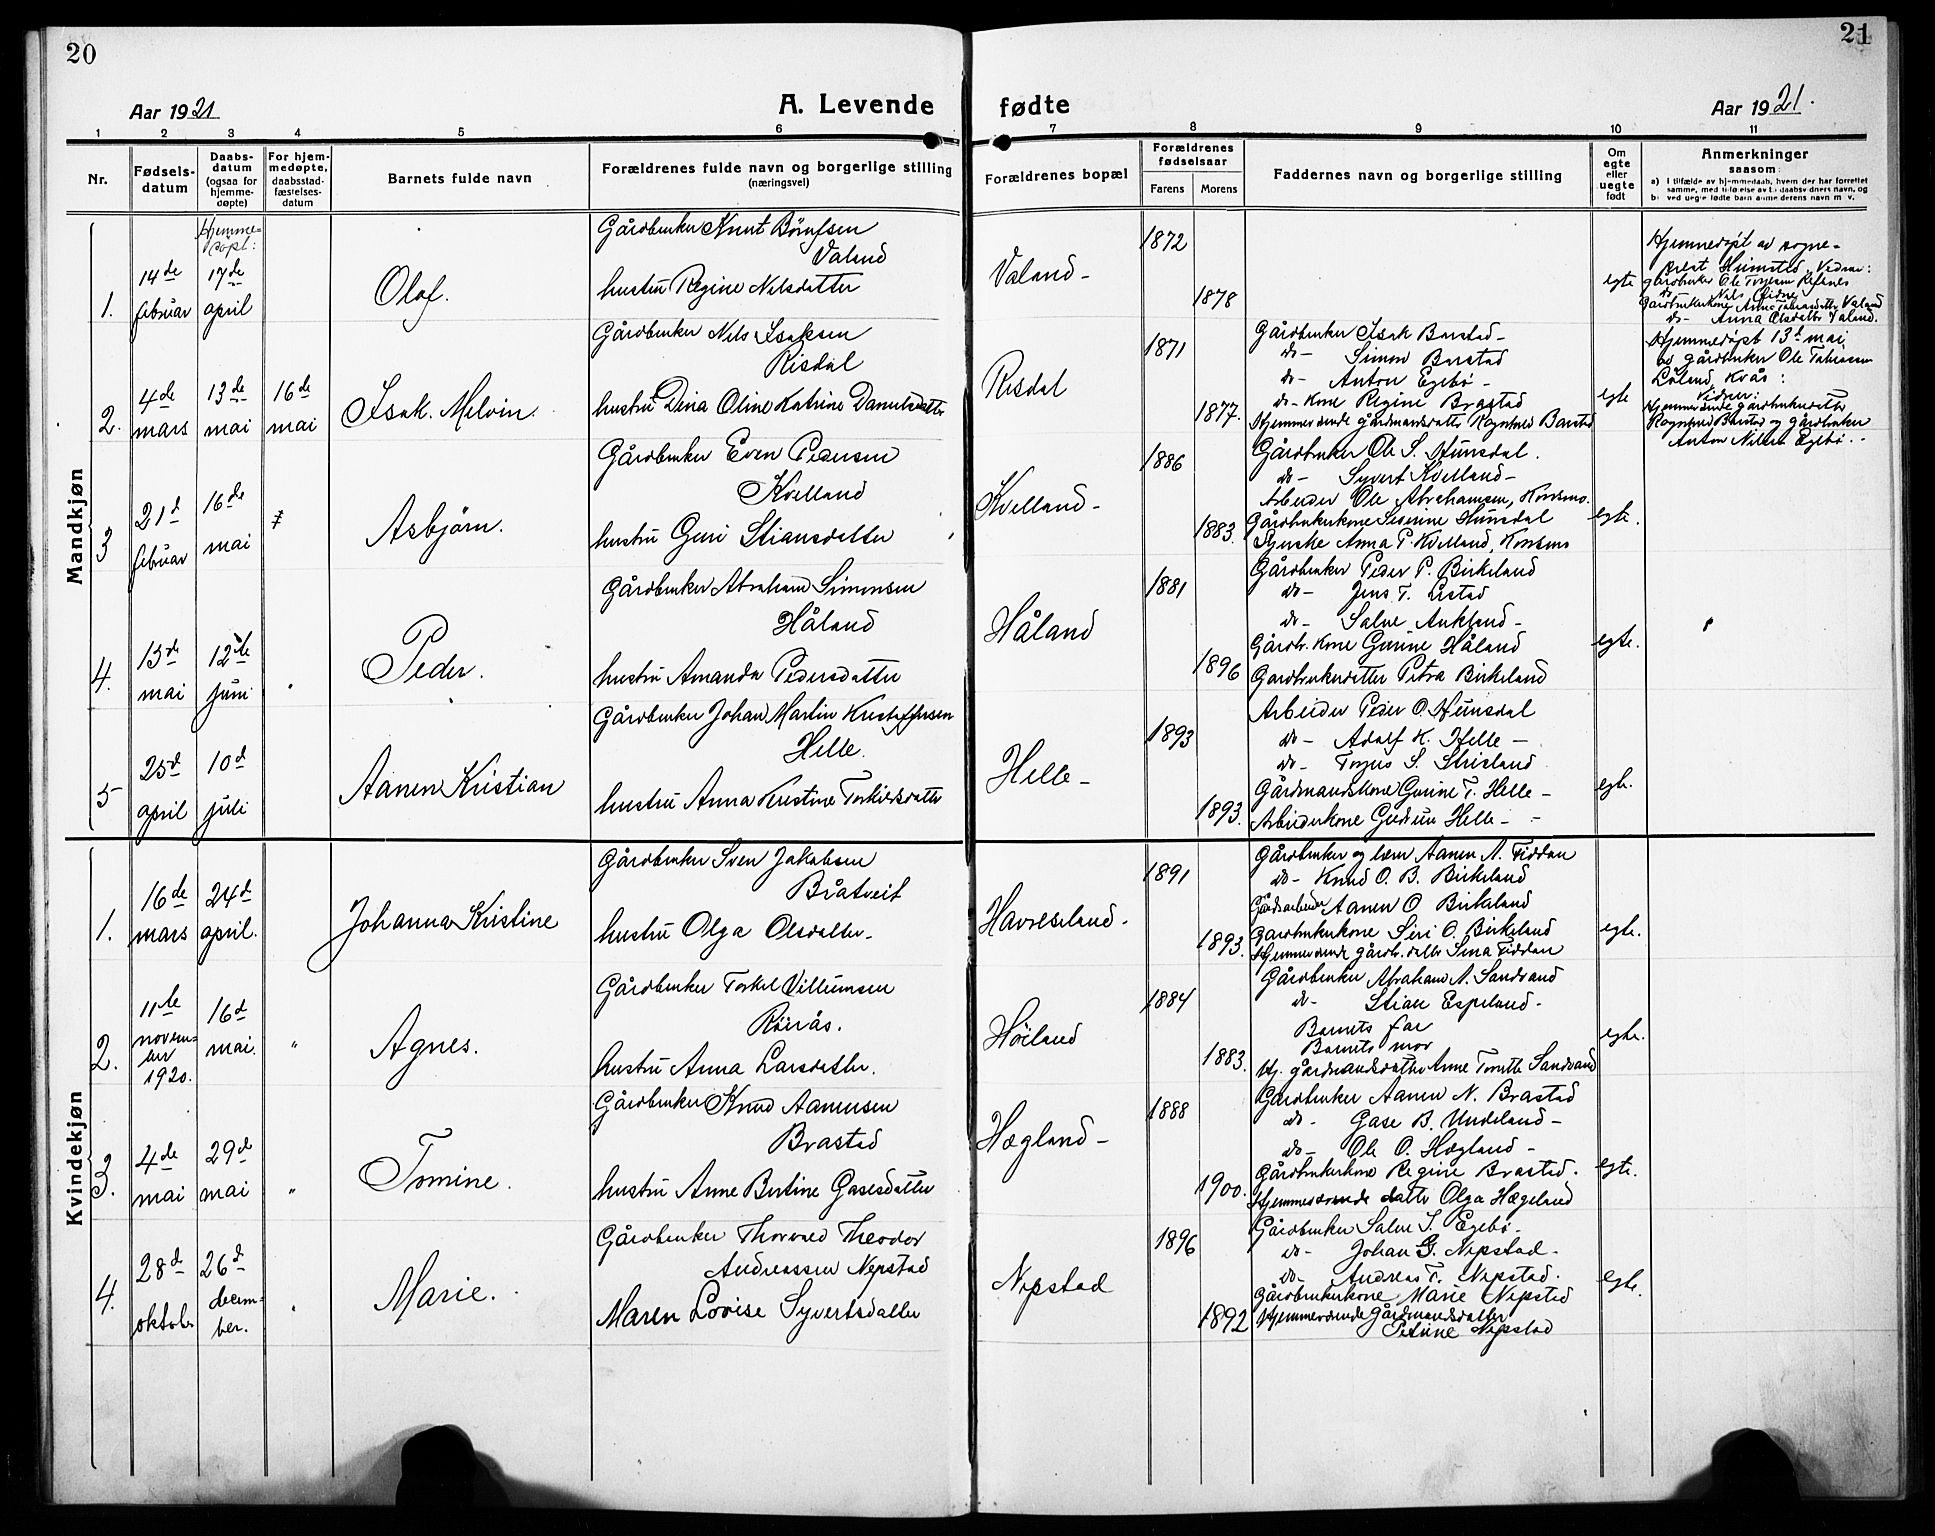 20
21
Aar 1921
A. Levende
fødte
Aar 1921.
1 2 3 4 5 6 7 8 9 10 11
Nr.
Fødsels-
datum
Daabs-
datum
(ogsaa for
hjemme-
døpte)
For hjem-
medøpte,
daabsstad-
fæstelses-
datum
Barnets fulde navn
Forældrenes fulde navn og borgerlige stilling
(næringsvei)
Forældrenes bopæl
Forældrenes
fødselsaar
Farens
Morens
Faddernes navn og borgerlige stilling
Om
egte
eller
uegte
født
Anmerkninger
saasom:
Mandkjøn
1.
14de
februar
Hjemme-
døpt:
17de
april
Olaf.
Gårdbruker Knut
Valand
hustru Regine Nilsdatter
Valand-
1872
1878
egte
Hjemmedøpt av sogne-
prest
gårdbruker Ole
do Nils
Gårdbrukerkone Valand
do- Anna Olsdatter Valand.
2.
4de
mars
13de
mai
16de
mai
Isak. Melvin.
Gårdbruker Nils Isaksen
Risdal
hustru Dina Oline Katrine Danielsdatter
Risdal
1871
1877.
Gårdbruker Isak Barstad-
do- Simon Barstad
do- Anton Egebø-
do- Kone Regine Brastad
Hjemmeværende gårdmandsdatter Ragnhild Barstad
egte
Hjemmedøpt 13d mai
av gårdbruker Ole
Kvås:
Vidner:
Hjemmeværende gårdbrukerdatter
Ragnhild Barstad og gårdbruker
Anton Nilsen Egebø.-
3
21d
februar
16de
mai
Asbjørn.
Gårdbruker Even Pedersen
Kvelland
hustru Guri Stiansdatter
Kvelland-
1886
1883.
Gårdbruker Ole S. Hunsdal.
do- Syvert Kvelland-
Arbeider Ole Abrahamsen,
Gårdbrukerkone Severine Hunsdal
Anna P. Kvelland,
egte.
4.
13de
mai
12te
juni
"
Peder.
Gårdbruker Abraham Simonsen
Håland
hustru Amanda Pedersdatter
Håland
1881
1896
Gårdbruker Peder P. Birkeland
do- Jens T.
do- Salve Aukland-
Gårdbr. Kone Gurine Håland
Gårdbrukerdatter Petra Birkeland
egte.
5
25d
april
10d
juli
Aanen Kristian
Gårdbruker Johan Martin Kristoffersen
Helle.
hustru Anna Kristine Torkildsdatter
Helle-
1893
1893.
Arbeider Peder O. Hunsdal
do- Adolf K. Helle-
do- S.
Gårdmandskone Gurine T. Helle-
Arbeiderkone Gudrun Helle--
egte.
Kvindekjøn
1.
16de
mars
24d
april.
Johanna Kristine
Gårdbruker Sven Jakobsen
Bråtveit
hustru Olga Olsdatter-
Havreseland-
1891
1893.
Gårdbruker og lærer Aanen A. Fiddan
do- Knud O. B. Birkeland
Gårdsarbeider Aanen O Birkeland
Gårdbrukerkone Siri O. Birkeland
Hjemmeværende gårdbr. datter Sina Fiddan
egte.
2.
11te
novem-
ber
1920.
16d
mai.
"
Agnes.
Gårdbruker Torkel Villumsen
Røirås.
hustru Anna Larsdatter.
Høiland
1884
1883.
Gårdbruker Abraham A. Sandvand
do- Stian Espeland-
Barnets far
Barnets mor
Hj. gårdmandsdatter Anne Tomette Sandvand
egte.
3.
4de
mai
29d
mai
"
Tomine.
Gårdbruker Knud Aanensen
Brastad
hustru Anne Bertine Gasesdatter
Hægland-
1888
1900.
Gårdbruker Aanen N. Brastad
do- Gase B. Undeland-
do- Ole O. Hægland-
Gårdbrukerkone Regine Brastad.
Hjemmeværende datter Olga Hægeland
egte.
4.
28d
oktober
26d
decem-
ber.
"
Marie.
Gårdbruker Thorvald Theodor
Andreassen Nepstad
Maren Lovise Syvertsdatter
Nepstad
1896
1892
Gårdbruker Salve S. Egebø-
do- Johan G. Nepstad-
do- Andreas T. Nepstad.
Gårdbrukerkone Marie Nepstad
Hjemmeværende Gårdmandsdatter
Petrine Nepstad
egte.